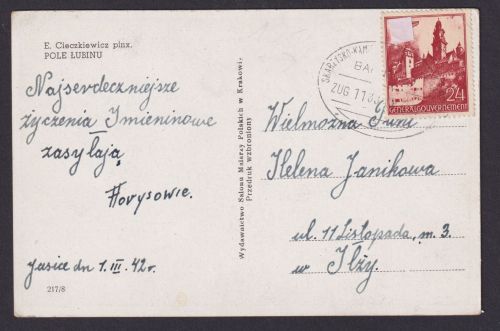 E. Cieczkiewicz pinx.
POLE ŁUBINU
Najserdeczniejsze
życzenia Imieninowe
zasyłają
Jasice dn 1.III. 42 r.
217/8
Wydawnictwo Salonu Malarzy Polskich w Krakowie
Przedruk wzbroniony
SKARZYSKO-KAM
ZUG 1183
24
GENERALGOUVERNEMENT
Wielmożna Pani
Helena Janikowa
ul. 11 Listopada, m. 3
w Iłży.